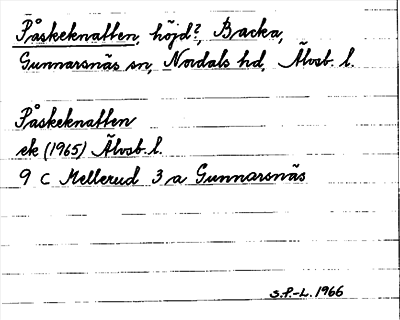 Påskeknatten, höjd?, Backa,
Gunnarsnäs sn, Nordals hd, Älvsb. l.
Påskeknatten
ek (1965) Älvsb. l.
9 C Mellerud 3 a Gunnarsnäs
S.P.-L. 1966